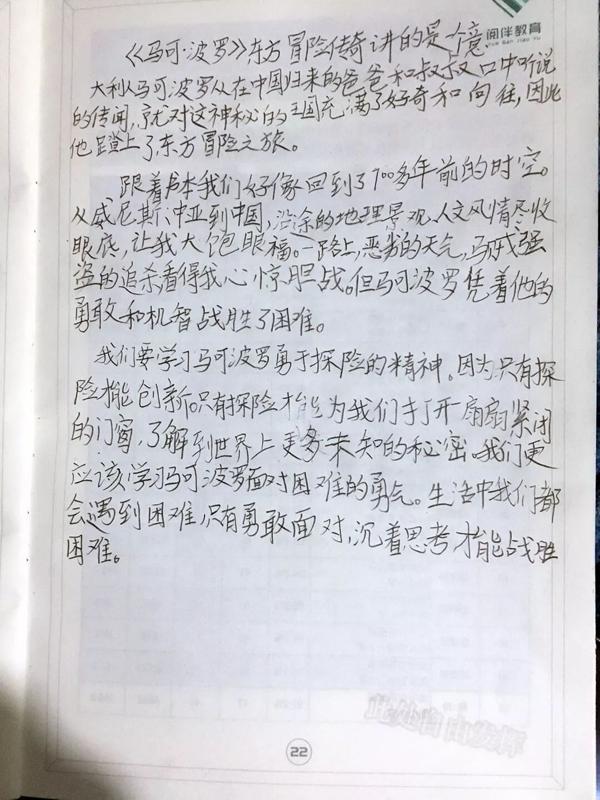 阅伴教育
YUE BAN JIAO YU
《马可·波罗》东方冒险传奇讲的是个意
大利人马可波罗从在中国归来的爸爸和叔叔口中听说
的传闻,就对这神秘的王国充满了好奇和向往,因此
他蹬上了东方冒险之旅。
跟着书本我们好像回到了700多年前的时空。
从威尼斯、中亚到中国,沿途的地理景观、人文风情尽收
眼底,让我大饱眼福。一路上,恶劣的天气,马贼强
盗的追杀看得我心惊胆战。但马可波罗凭着他的
勇敢和机智战胜了困难。
我们要学习马可波罗勇于探险的精神。因为只有探
险才能创新。只有探险才能为我们打开扇扇紧闭
的门窗,了解到世界上更多未知的秘密。我们更
应该学习马可波罗面对困难的勇气。生活中我们都
会遇到困难,只有勇敢面对,沉着思考才能战胜
困难。
此处自由发挥
22